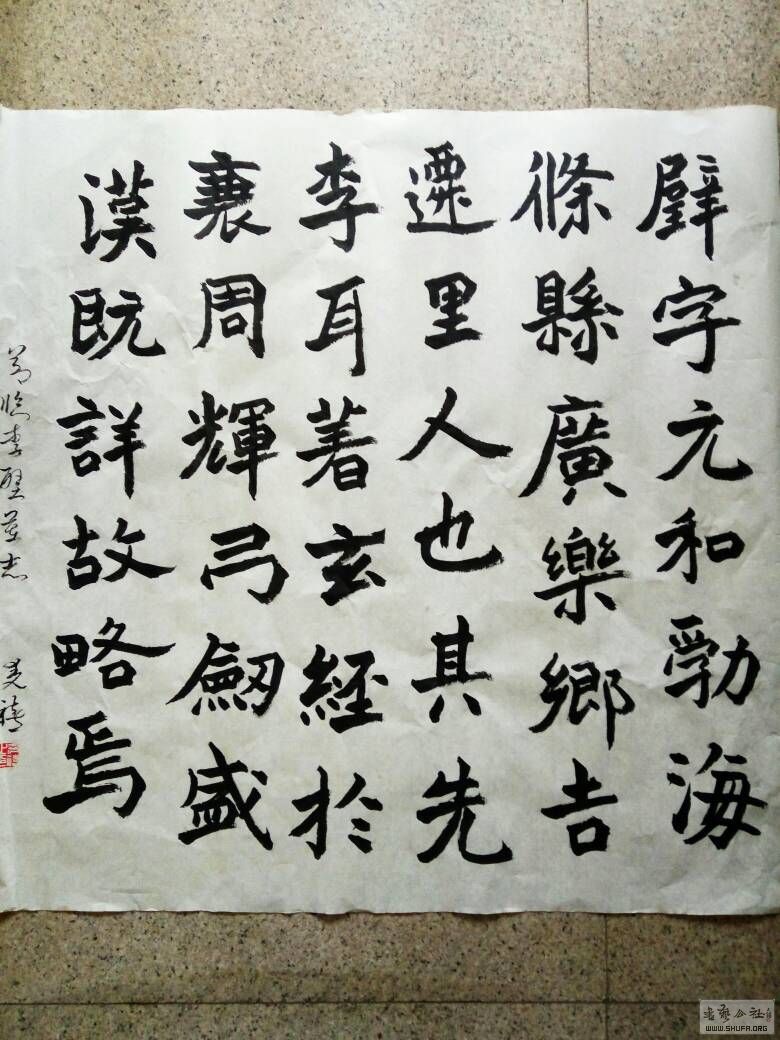 璧字元和勃海
條縣廣樂鄉吉
遷里人也其先
李耳著玄經於
衰周輝弓劒盛
漢既詳故略焉
節臨李璧墓志
書藝公社
WWW.SHUFA.ORG